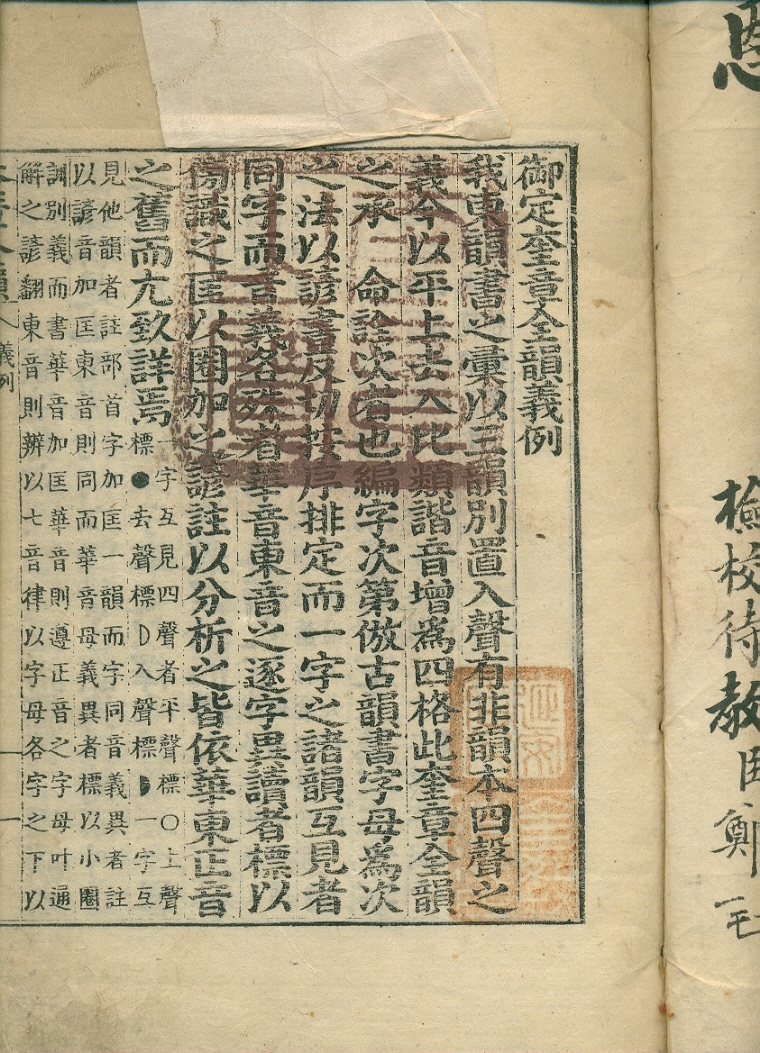 檢校待教臣鄭
御定奎章全韻義例
我東韻書之彙以三韻別置入聲有非韻本四聲之
義今以平上去入比類諧音增為四格此奎章全韻
之承 命詮次者也編字次第倣古韻書字母為次
之法以諺書反切按序排定而一字之諸韻互見者
同字而音義各殊者華音東音之逐字異讀者標以
傍識之匡以圈加之諺註以分析之皆依華東正音
之舊而尤致詳焉
一字互見四聲者平聲標○上聲
標●去聲標D入聲標◗一字互
見他韻者註部首字加匡一韻而字同音義異者註
以諺音加匡東音則同而華音母義異者標以小圈
訓別義而書華音加匡華音則遵正音之字母叶通
解之諺翻東音則辨以七音律以字母各字之下以
義例 一